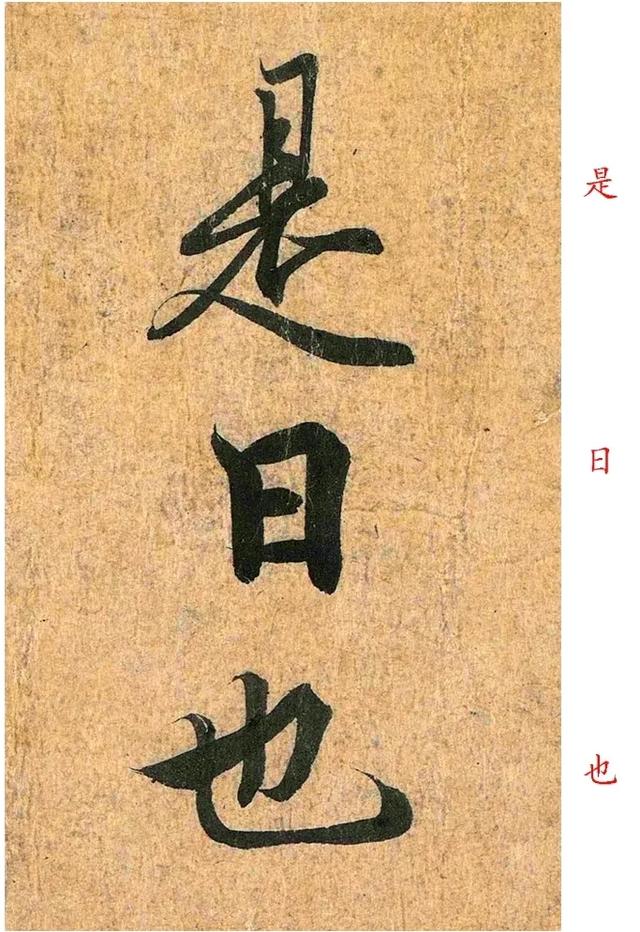 是日也
是
日
也